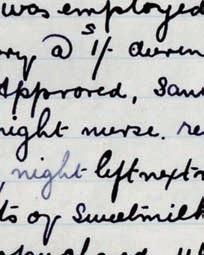 was employed
@ 1/- durin
Approved, San
night nurse. re
, night left next
ts of Sweetmilk